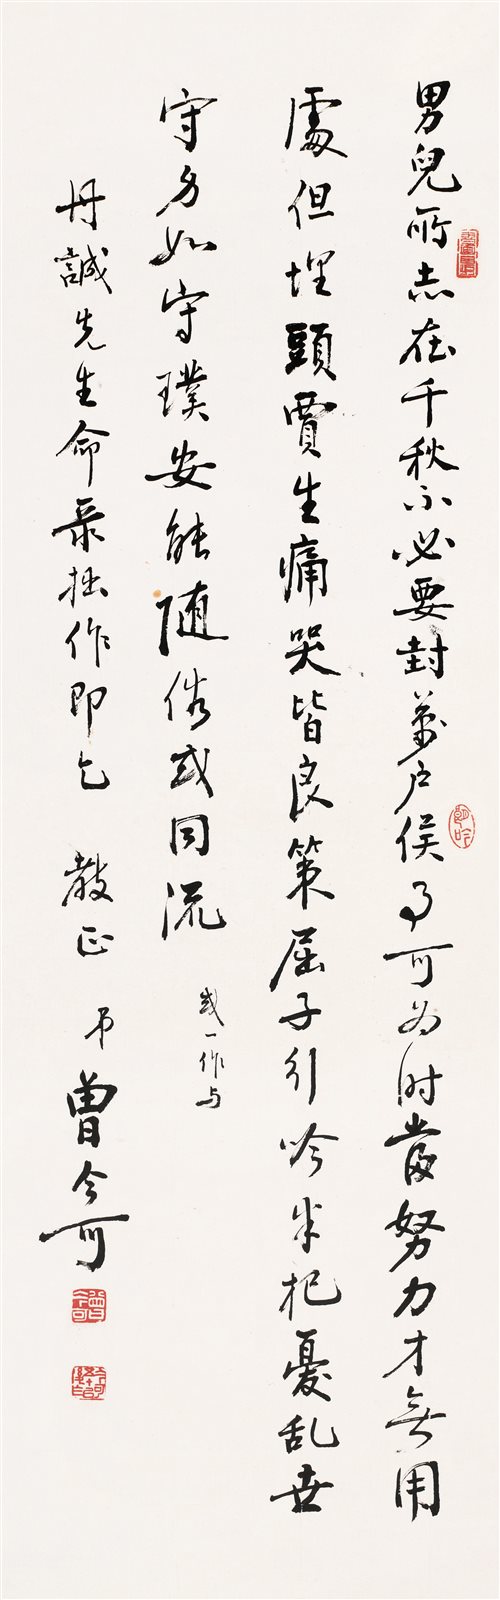 男兒所志在千秋不必要封萬戶侯事可为時當努力才無用
處但埋頭賈生痛哭皆良策屈子行吟半杞憂乱世
守身如守璞安能随俗或同流
或一作与
丹誠先生命录拙作即乞 教正 弟曾今可
曾今可